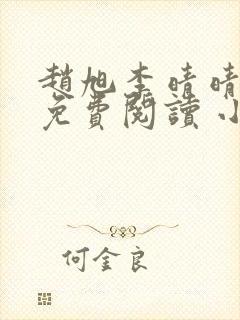 趙旭李晴晴
免費閱讀小
何金良